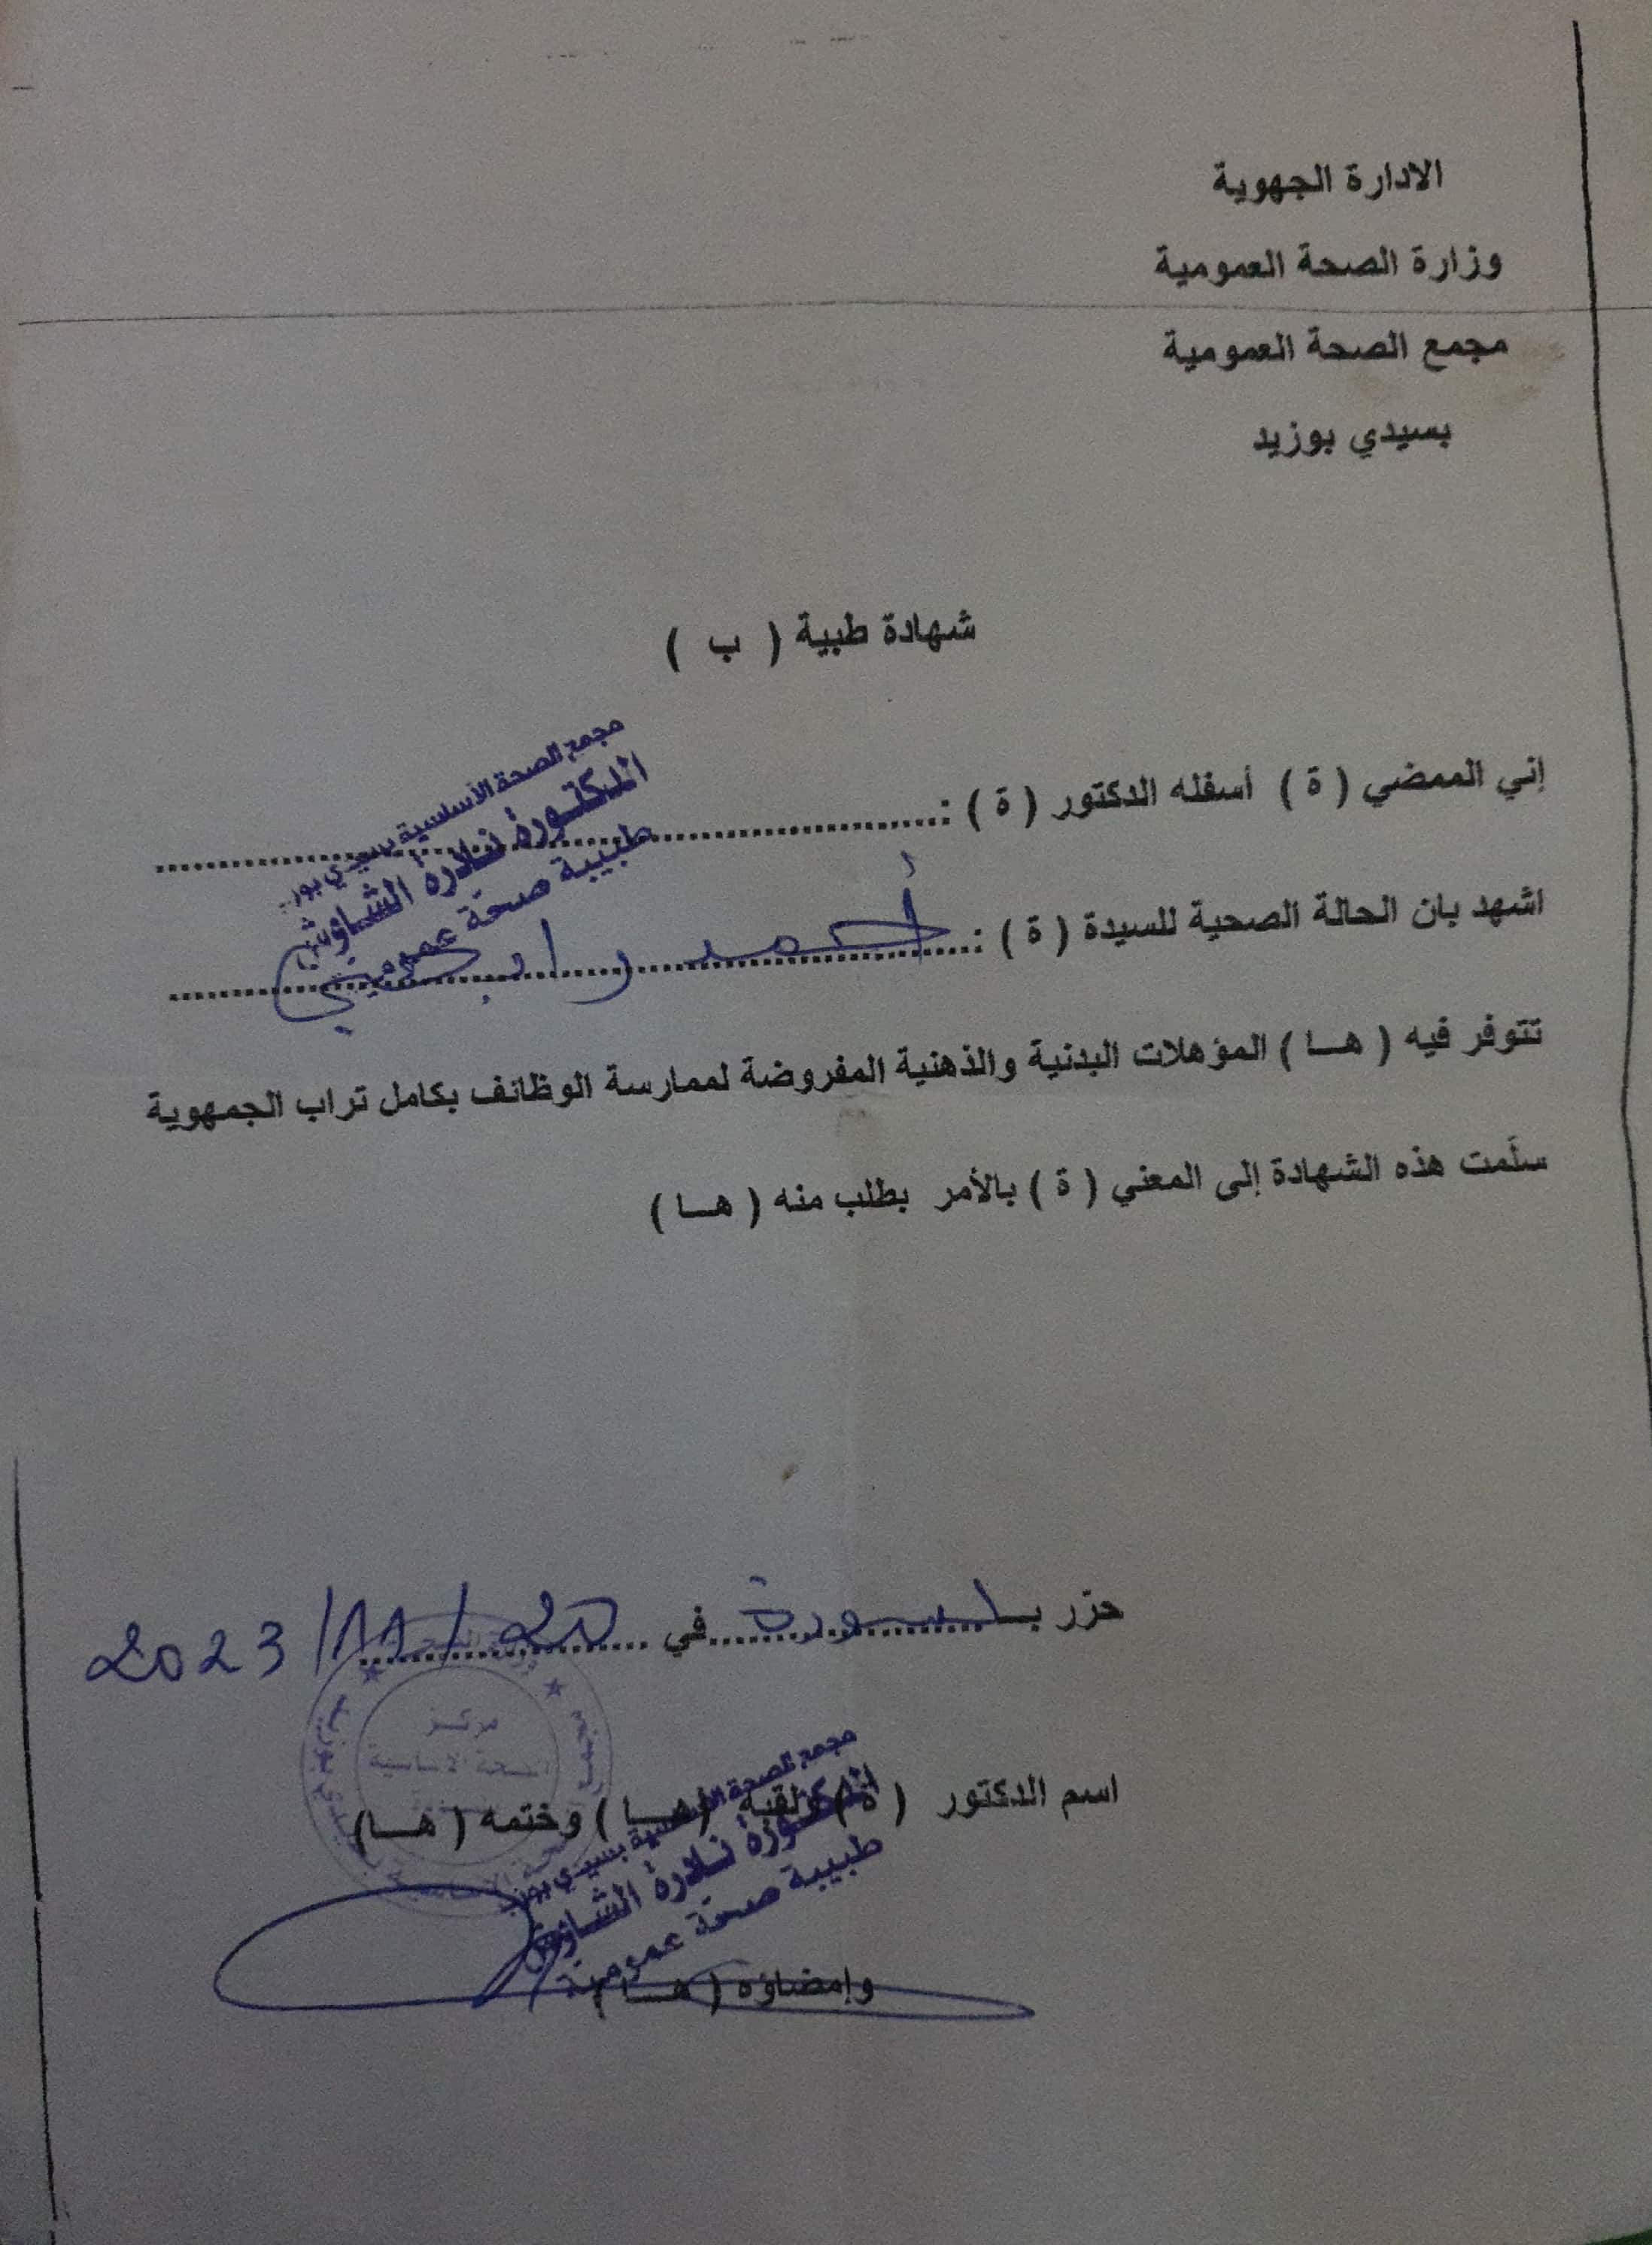 الادارة الجهوية
وزارة الصحة العمومية
مجمع الصحة العمومية
بسيدي بوزيد
شهادة طبية ( ب )
مجمع الصحة الأساسية بسيدي بوزيد
الدكتورة نادرة الشاوش
طبيبة صحة عمومية
إني الممضي ( ة ) أسفله الدكتور ( ة ) :
اشهد بان الحالة الصحية للسيدة ( ة ) : أحمد رابحي
تتوفر فيه ( هـا ) المؤهلات البدنية والذهنية المفروضة لممارسة الوظائف بكامل تراب الجمهوية
سلّمت هذه الشهادة إلى المعني ( ة ) بالأمر بطلب منه ( هـا )
حرّر بـ في 20/11/2023
مركز
الصحة الاساسية
اسم الدكتور ( ة ) ولقبه ( هـا ) وختمه ( هـا )
مجمع الصحة الأساسية بسيدي بوزيد
الدكتورة نادرة الشاوش
طبيبة صحة عمومية
وإمضاؤه ( هـا )